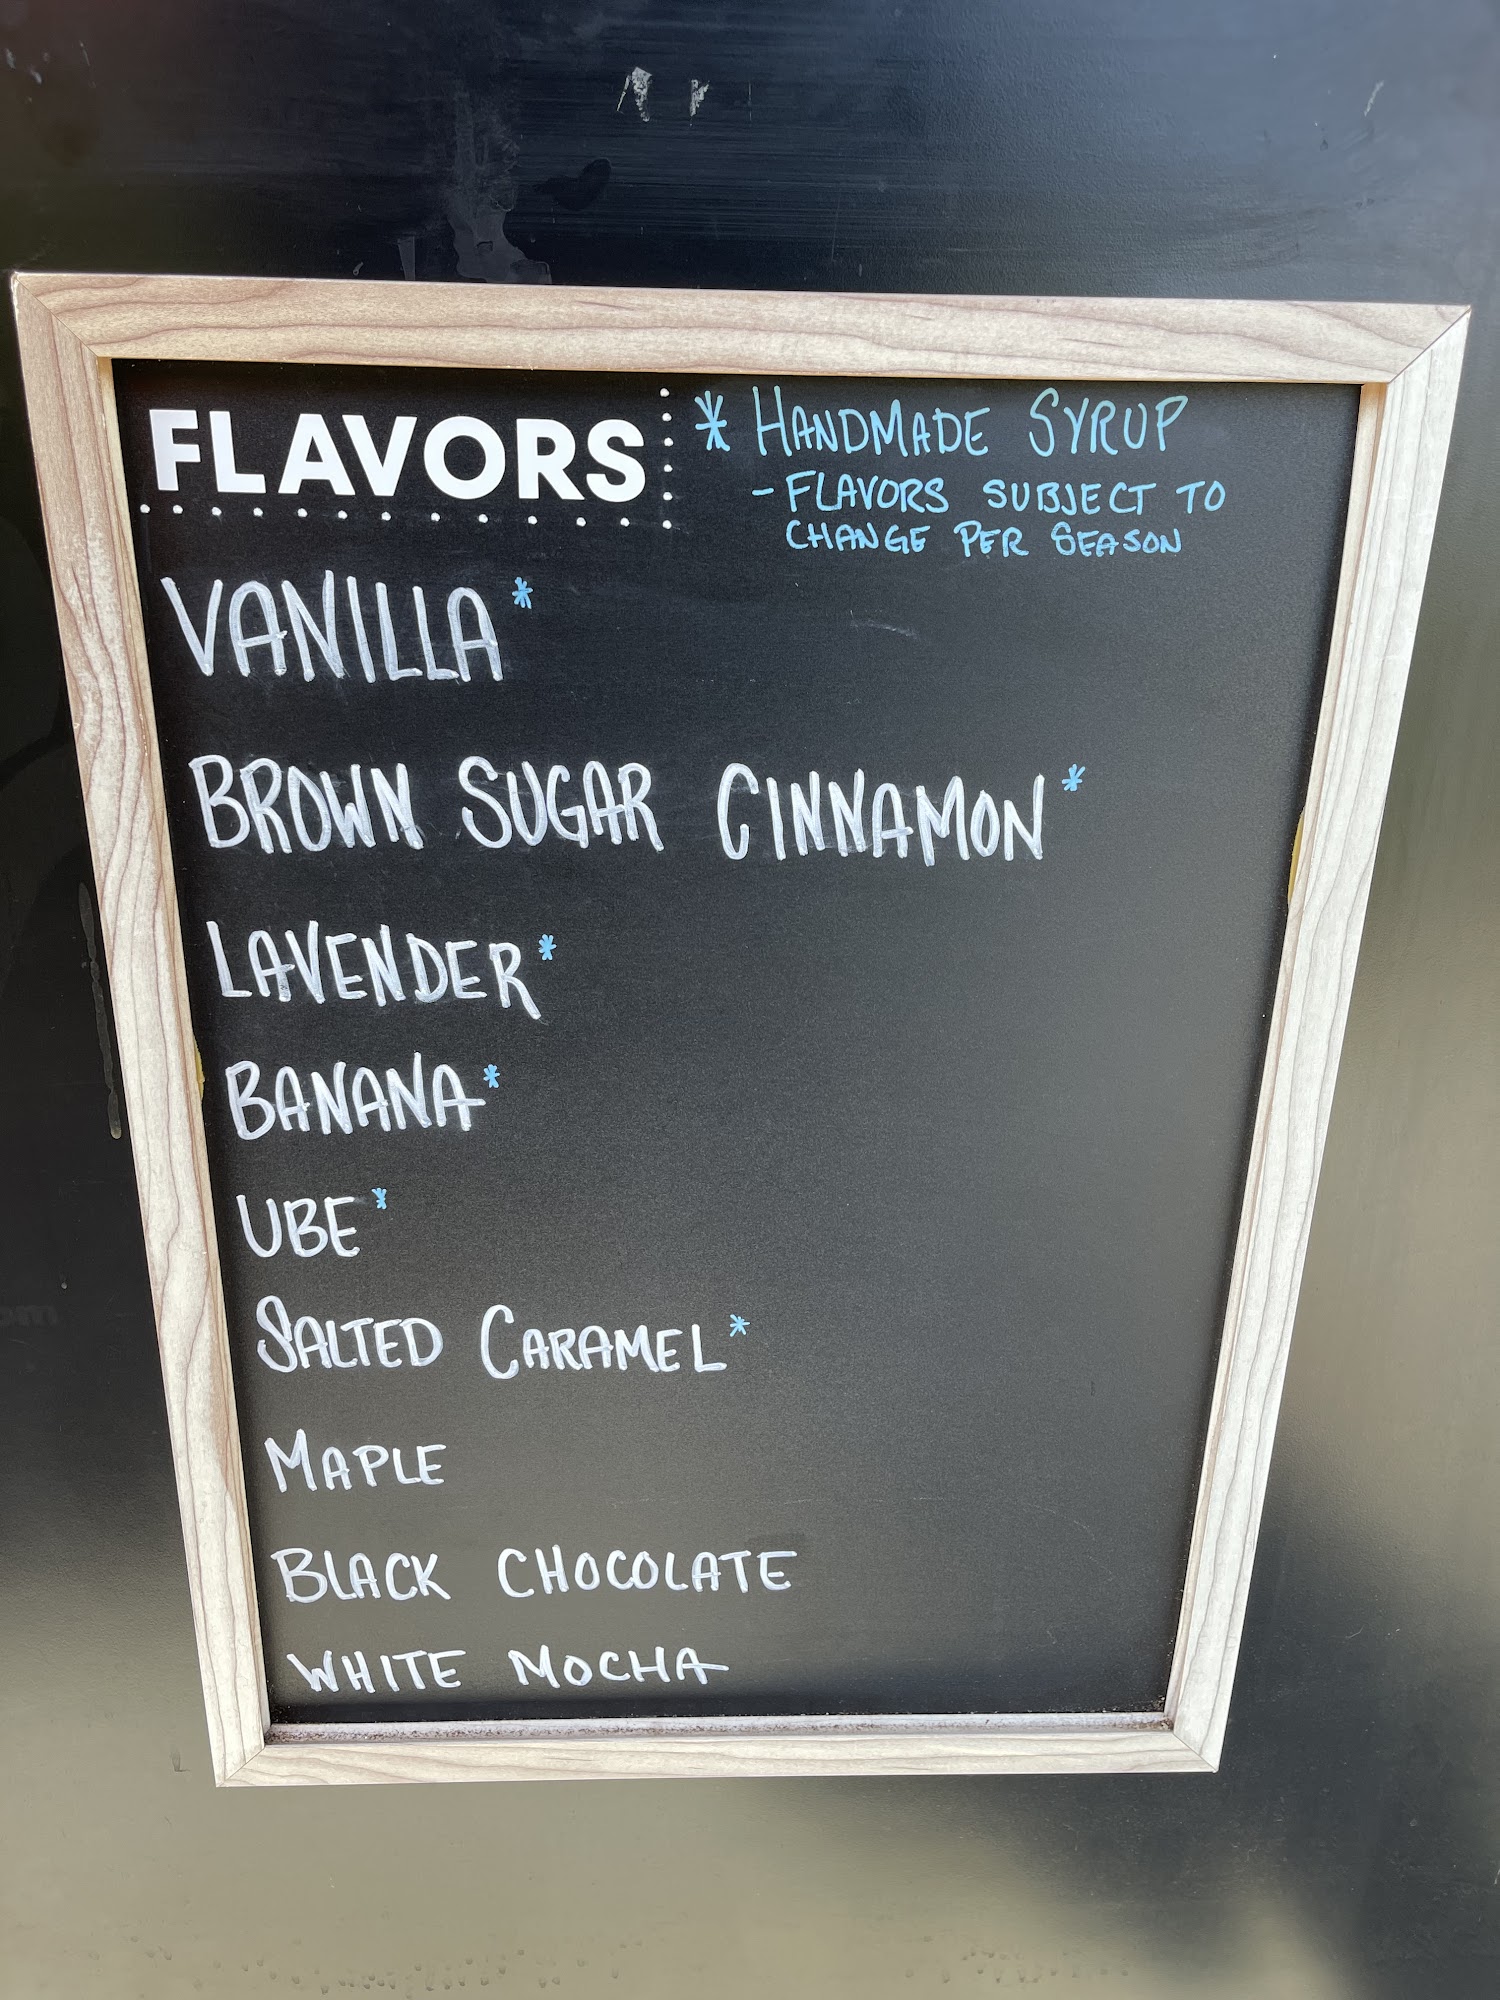 FLAVORS
* HANDMADE SYRUP
- FLAVORS SUBJECT TO
CHANGE PER SEASON
VANILLA*
BROWN SUGAR CINNAMON*
LAVENDER*
BANANA*
UBE*
SALTED CARAMEL*
MAPLE
BLACK CHOCOLATE
WHITE MOCHA